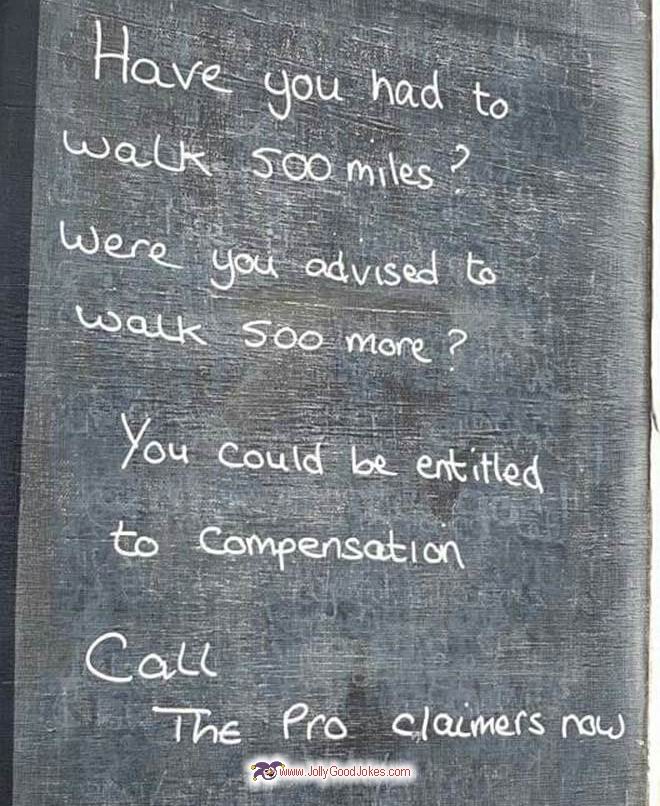 Have you had to
walk 500 miles?
Were you advised to
walk 500 more?
You could be entitled
to compensation
Call
The Pro claimers now
www.JollyGoodJokes.com